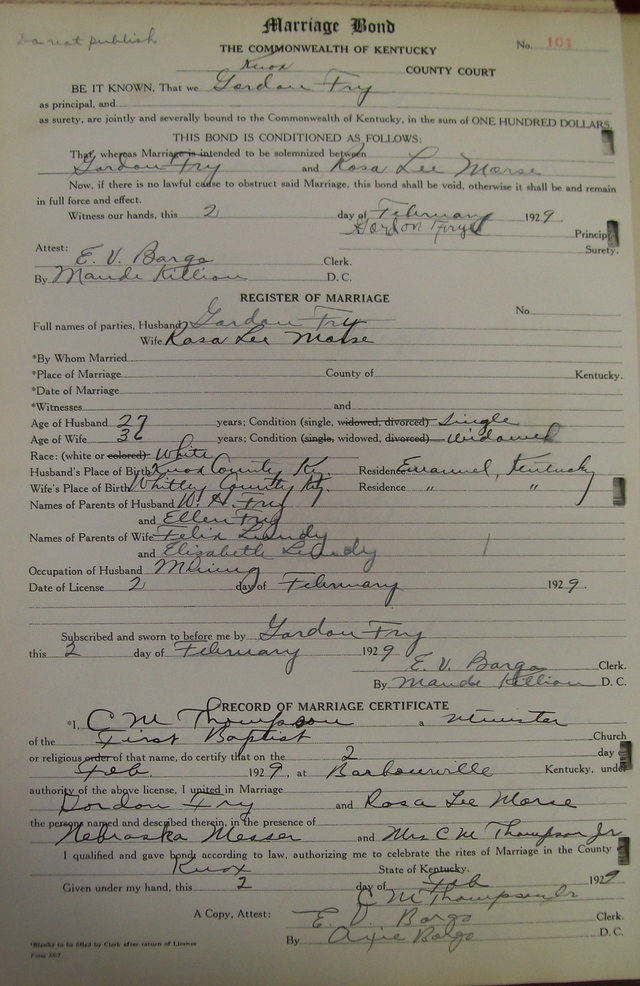 Do not publish
Marriage Bond
THE COMMONWEALTH OF KENTUCKY
No. 101
Knox COUNTY COURT
BE IT KNOWN, That we Gordon Fry
as principal, and
as surety, are jointly and severally bound to the Commonwealth of Kentucky, in the sum of ONE HUNDRED DOLLARS,
THIS BOND IS CONDITIONED AS FOLLOWS:
That, whereas Marriage is intended to be solemnized between
Gordon Fry and Rosa Lee Morse
Now, if there is no lawful cause to obstruct said Marriage, this bond shall be void, otherwise it shall be and remain
in full force and effect.
Witness our hands, this 2 day of February 1929
Gordon Frye Princip
Surety.
Attest:
E. V. Bargo Clerk.
By Maude Killion D. C.
REGISTER OF MARRIAGE
No.
Full names of parties, Husband Gordon Fry
Wife Rosa Lee Morse
*By Whom Married
*Place of Marriage County of Kentucky.
*Date of Marriage
*Witnesses and
Age of Husband 27 years; Condition (single, widowed, divorced) Single
Age of Wife 36 years; Condition (single, widowed, divorced) Widowed
Race: (white or colored) White
Husband's Place of Birth Knox County Ky. Residence Emanuel, Kentucky
Wife's Place of Birth Whitley County Ky. Residence " "
Names of Parents of Husband W. H. Fry
and Ellen Fry
Names of Parents of Wife Felix
and Elizabeth
Occupation of Husband Mining
Date of License 2 day of February 1929.
Subscribed and sworn to before me by Gordon Fry
this 2 day of February 1929
E. V. Bargo Clerk.
By Maude Killion D. C.
RECORD OF MARRIAGE CERTIFICATE
*I, C M Thompson a minister
of the First Baptist Church
or religious order of that name, do certify that on the 2 day
Feb. 1929, at Barbourville Kentucky, under
authority of the above license, I united in Marriage
Gordon Fry and Rosa Lee Morse
the persons named and described therein, in the presence of
Nebraska Messer and Mrs C M Thompson Jr
I qualified and gave bond, according to law, authorizing me to celebrate the rites of Marriage in the County
Knox State of Kentucky.
Given under my hand, this 2 day of Feb 1929
C M Thompson Jr
A Copy, Attest: E. V. Bargo Clerk.
By Axie Bargo D. C.
*Blanks to be filled by Clerk after return of License
Form 807